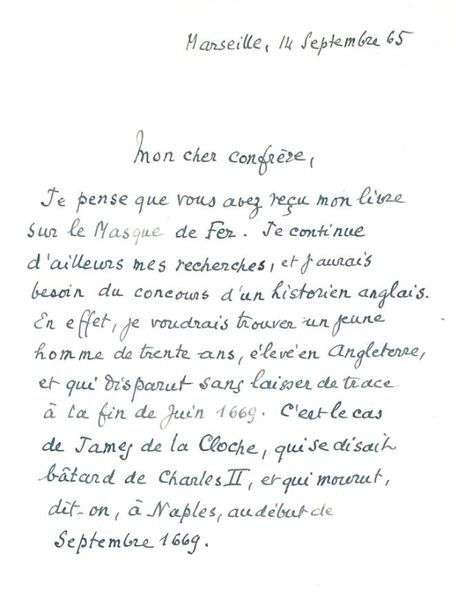 Marseille, 14 Septembre 65
Mon cher confrère,
Je pense que vous avez reçu mon livre
sur le Masque de Fer. Je continue
d'ailleurs mes recherches, et j'aurais
besoin du concours d'un historien anglais.
En effet, je voudrais trouver un jeune
homme de trente ans, élevé en Angleterre,
et qui disparut sans laisser de trace
à la fin de Juin 1669. C'est le cas
de James de la Cloche, qui se disait
bâtard de Charles II, et qui mourut,
dit-on, à Naples, au début de
Septembre 1669.